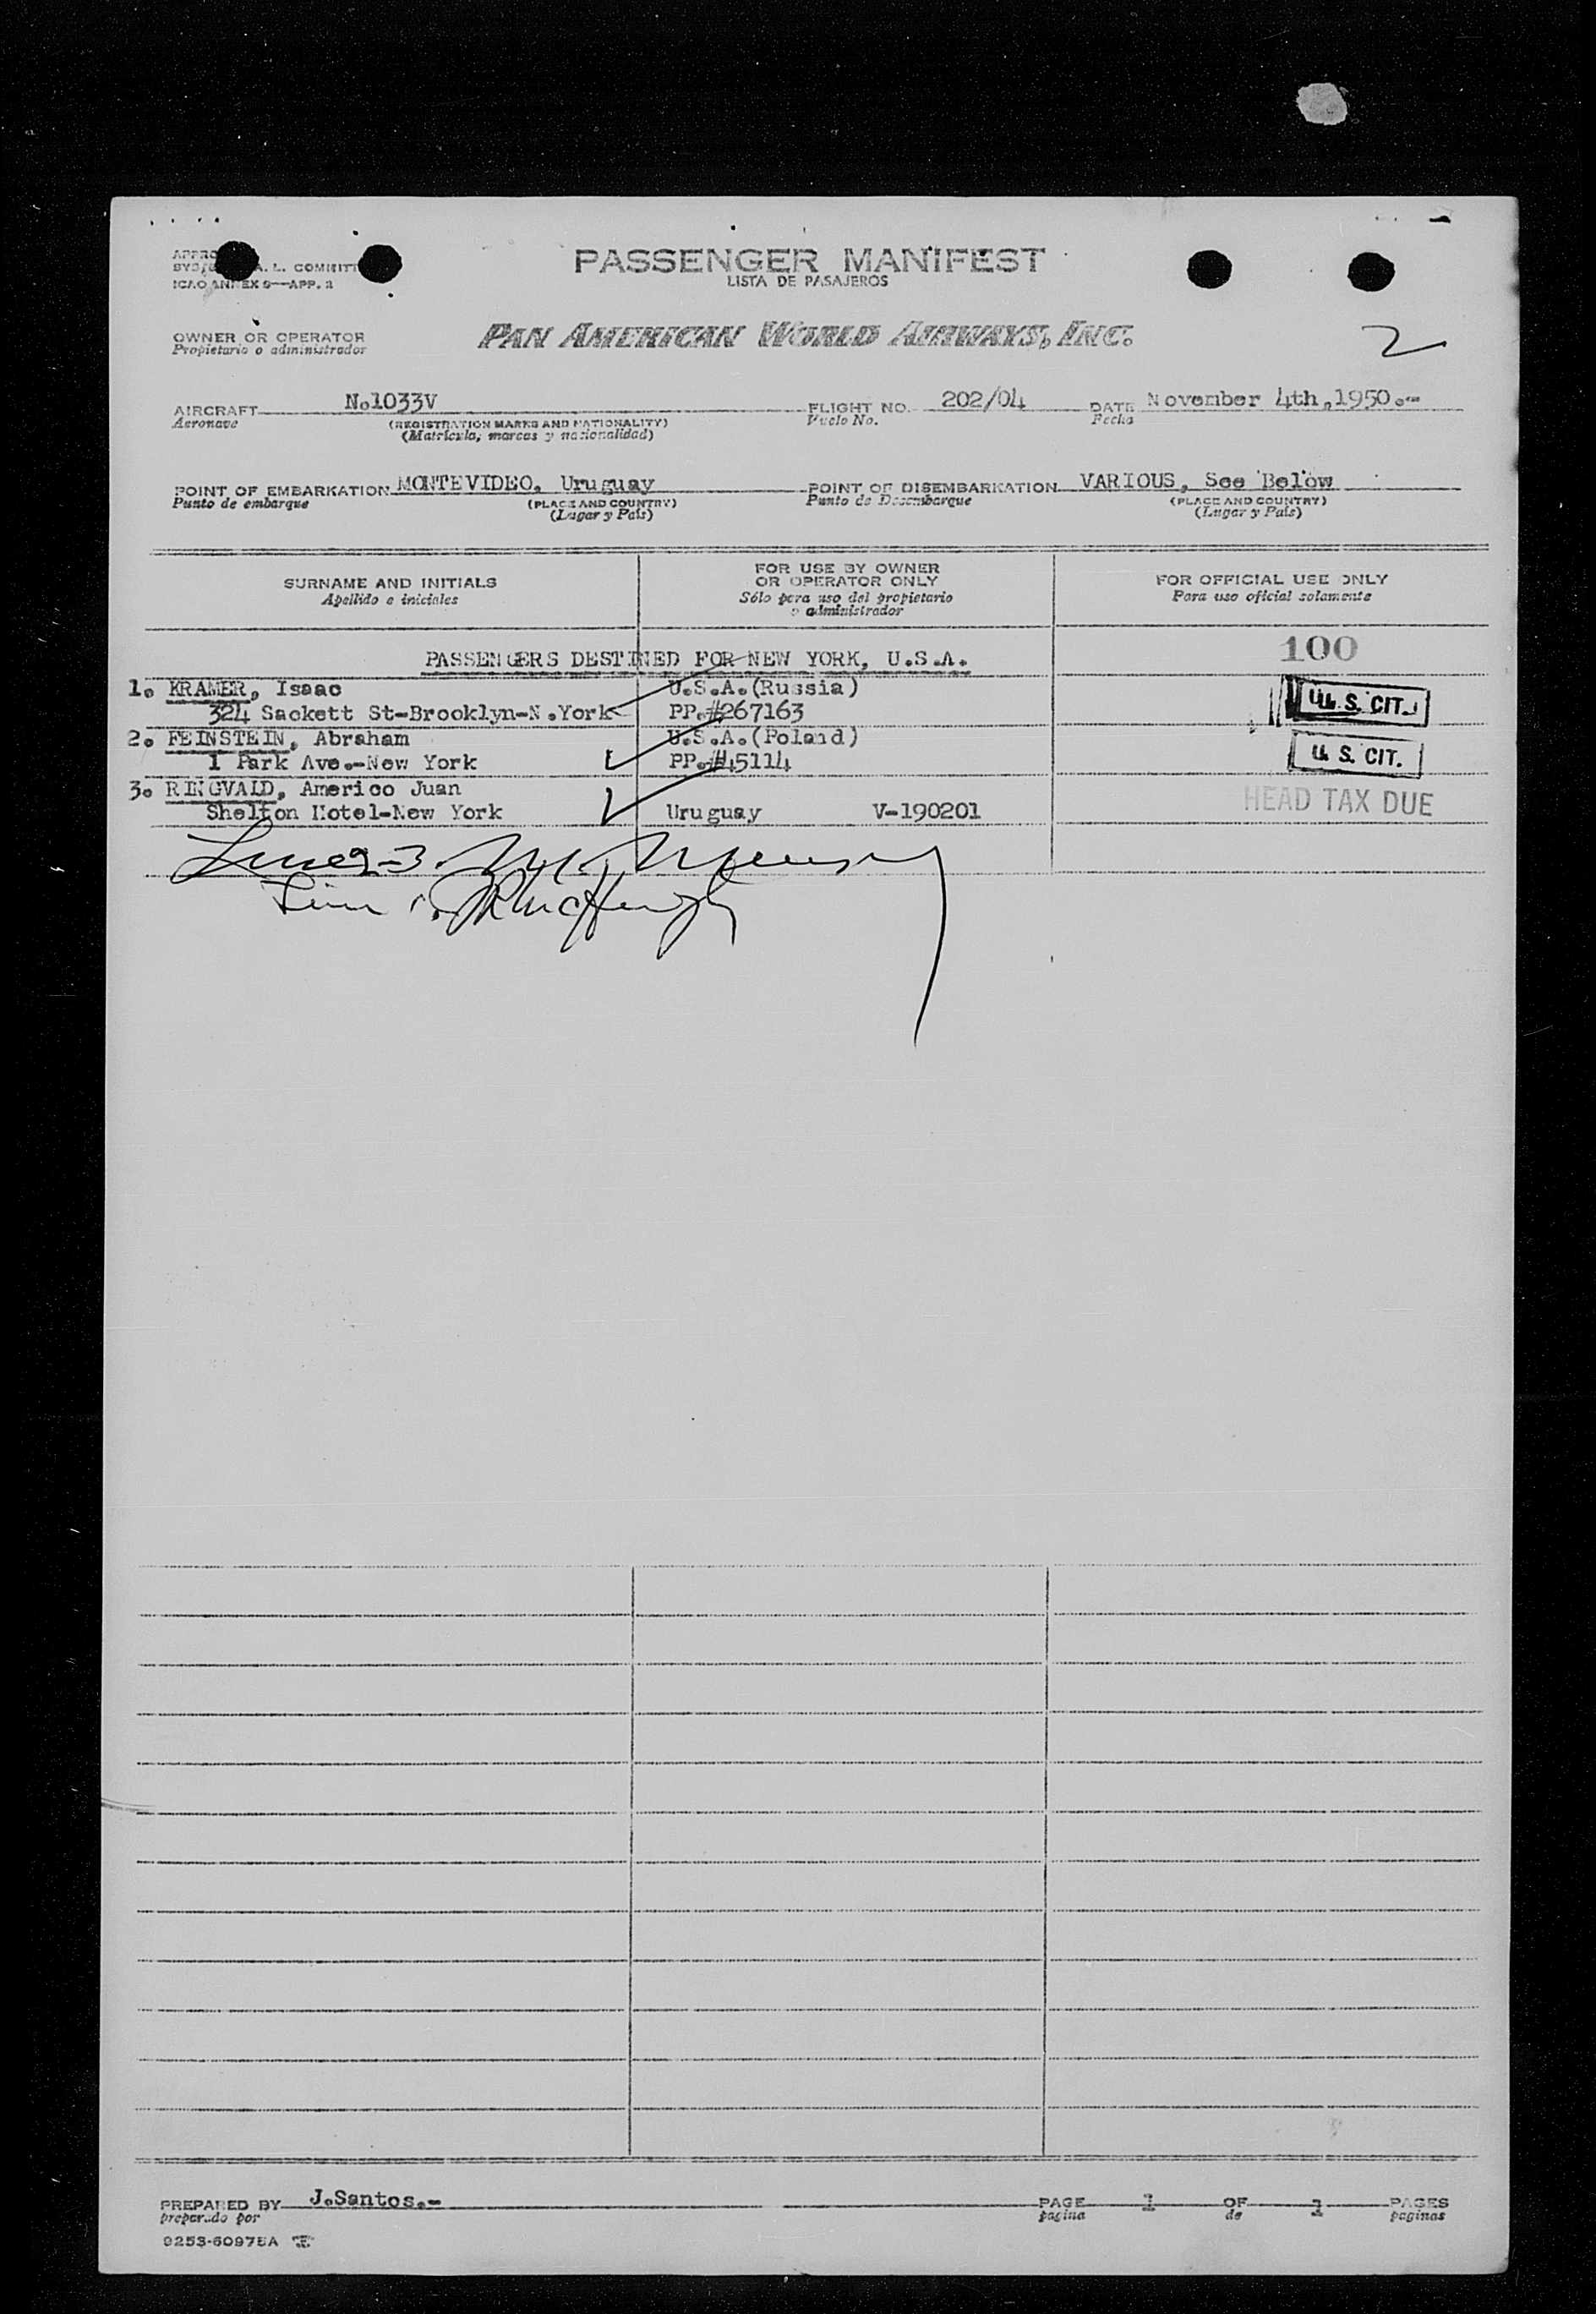 PASSENGER MANIFEST
LISTA DE PASAJEROS
ICAO ANNEX 9—APP. 2
OWNER OR OPERATOR
Propietario o administrador
PAN AMERICAN WORLD AIRWAYS, INC.
2
AIRCRAFT No1033V FLIGHT NO. 202/04 DATE November 4th,1950.-
Aeronave (REGISTRATION MARKS AND NATIONALITY) Vuelo No. Fecha
(Matrícula, marcas y nacionalidad)
POINT OF EMBARKATION MONTEVIDEO, Uruguay POINT OF DISEMBARKATION VARIOUS, See Below
Punto de embarque (PLACE AND COUNTRY) Punto de Desembarque (PLACE AND COUNTRY)
(Lugar y País) (Lugar y País)
SURNAME AND INITIALS FOR USE BY OWNER OR OPERATOR ONLY FOR OFFICIAL USE ONLY
Apellido e iniciales Sólo para uso del propietario o administrador Para uso oficial solamente
PASSENGERS DESTINED FOR NEW YORK, U.S.A. 100
1. KRAMER, Isaac U.S.A.(Russia)
324 Sackett St-Brooklyn-N.York PP.#267163 U. S. CIT.
2. FEINSTEIN, Abraham U.S.A.(Poland)
1 Park Ave.-New York PP.#45114 U. S. CIT.
3. RINGVALD, Americo Juan
Shelton Hotel-New York Uruguay V-190201 HEAD TAX DUE
PREPARED BY J.Santos.- PAGE 1 OF 1 PAGES
preparado por pagina de paginas
9253-60975A